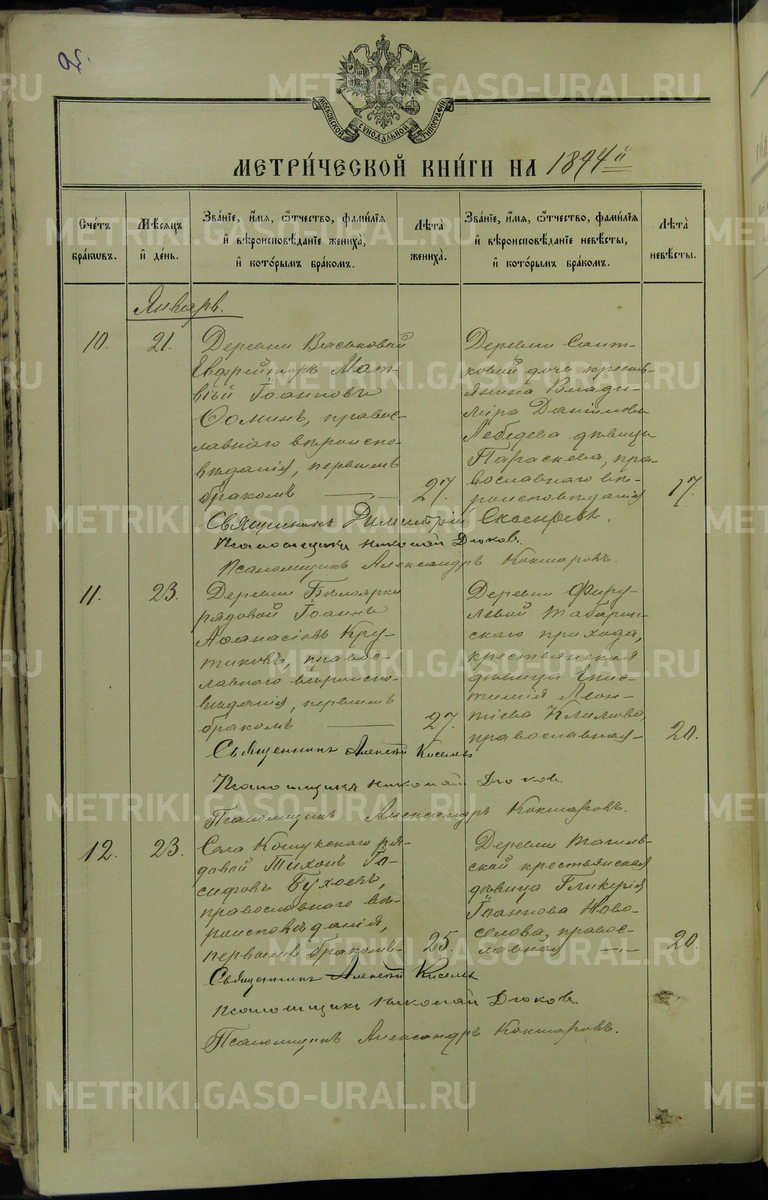 METRIKI.GASO-URAL.RU
Московской Сѵнодальной Типографіи
МЕТРИ́ЧЕСКОЙ КНИ́ГИ НА 1894й
Сче́тъ бра́кѡвъ.
Мѣ́сяцъ й де́нь.
Зва́нїе, и́мя, ѻ́тчество, фами́лїя
й вѣроисповѣ́данїе жениха̀,
й кото́рымъ бра́комъ.
Лѣ́та жениха̀.
Зва́нїе, и́мя, ѻ́тчество, фами́лїя
й вѣроисповѣ́данїе невѣ́сты,
й кото́рымъ бра́комъ.
Лѣ́та невѣ́сты.
Январь.
10.
21.
Деревни Васьковой
Ефрейторъ Мат-
вѣй Іоанновъ
Ѳоминъ, правос-
лавнаго вѣроиспо-
вѣданія, первымъ
бракомъ
27.
Деревни
дочь кресть-
янина Влади-
міра Даніилова
Лебедева дѣвица
Параскева, пра-
вославнаго вѣ-
роисповѣданія
17.
Священникъ Димитрій
Псаломщикъ Николай Дюков.
Псаломщикъ Александръ Кокшаровъ.
11.
23.
Деревни Бѣлоярки
рядовой Іоаннъ
Аѳанасіевъ Кру-
тиковъ, правос-
лавнаго вѣроиспо-
вѣданія, первымъ
бракомъ
27.
Деревни Фиру-
левой Табарин-
скаго прихода,
крестьянская
дѣвица Епис-
тимія Леон-
тіева Климова,
православная
20.
Священникъ Алексѣй Киселевъ
Псаломщикъ Николай Дюков.
Псаломщикъ Александръ Кокшаровъ.
12.
23.
Села Кошукскаго ря-
довой Тихонъ Іо-
сифовъ Бухоевъ,
православнаго вѣ-
роисповѣданія,
первымъ бракомъ
25.
Деревни
крестьянская
дѣвица Гликерія
Іоаннова Ново-
селова, правос-
лавная
20.
Священникъ Алексѣй Киселевъ
Псаломщикъ Николай Дюков.
Псаломщикъ Александръ Кокшаровъ.